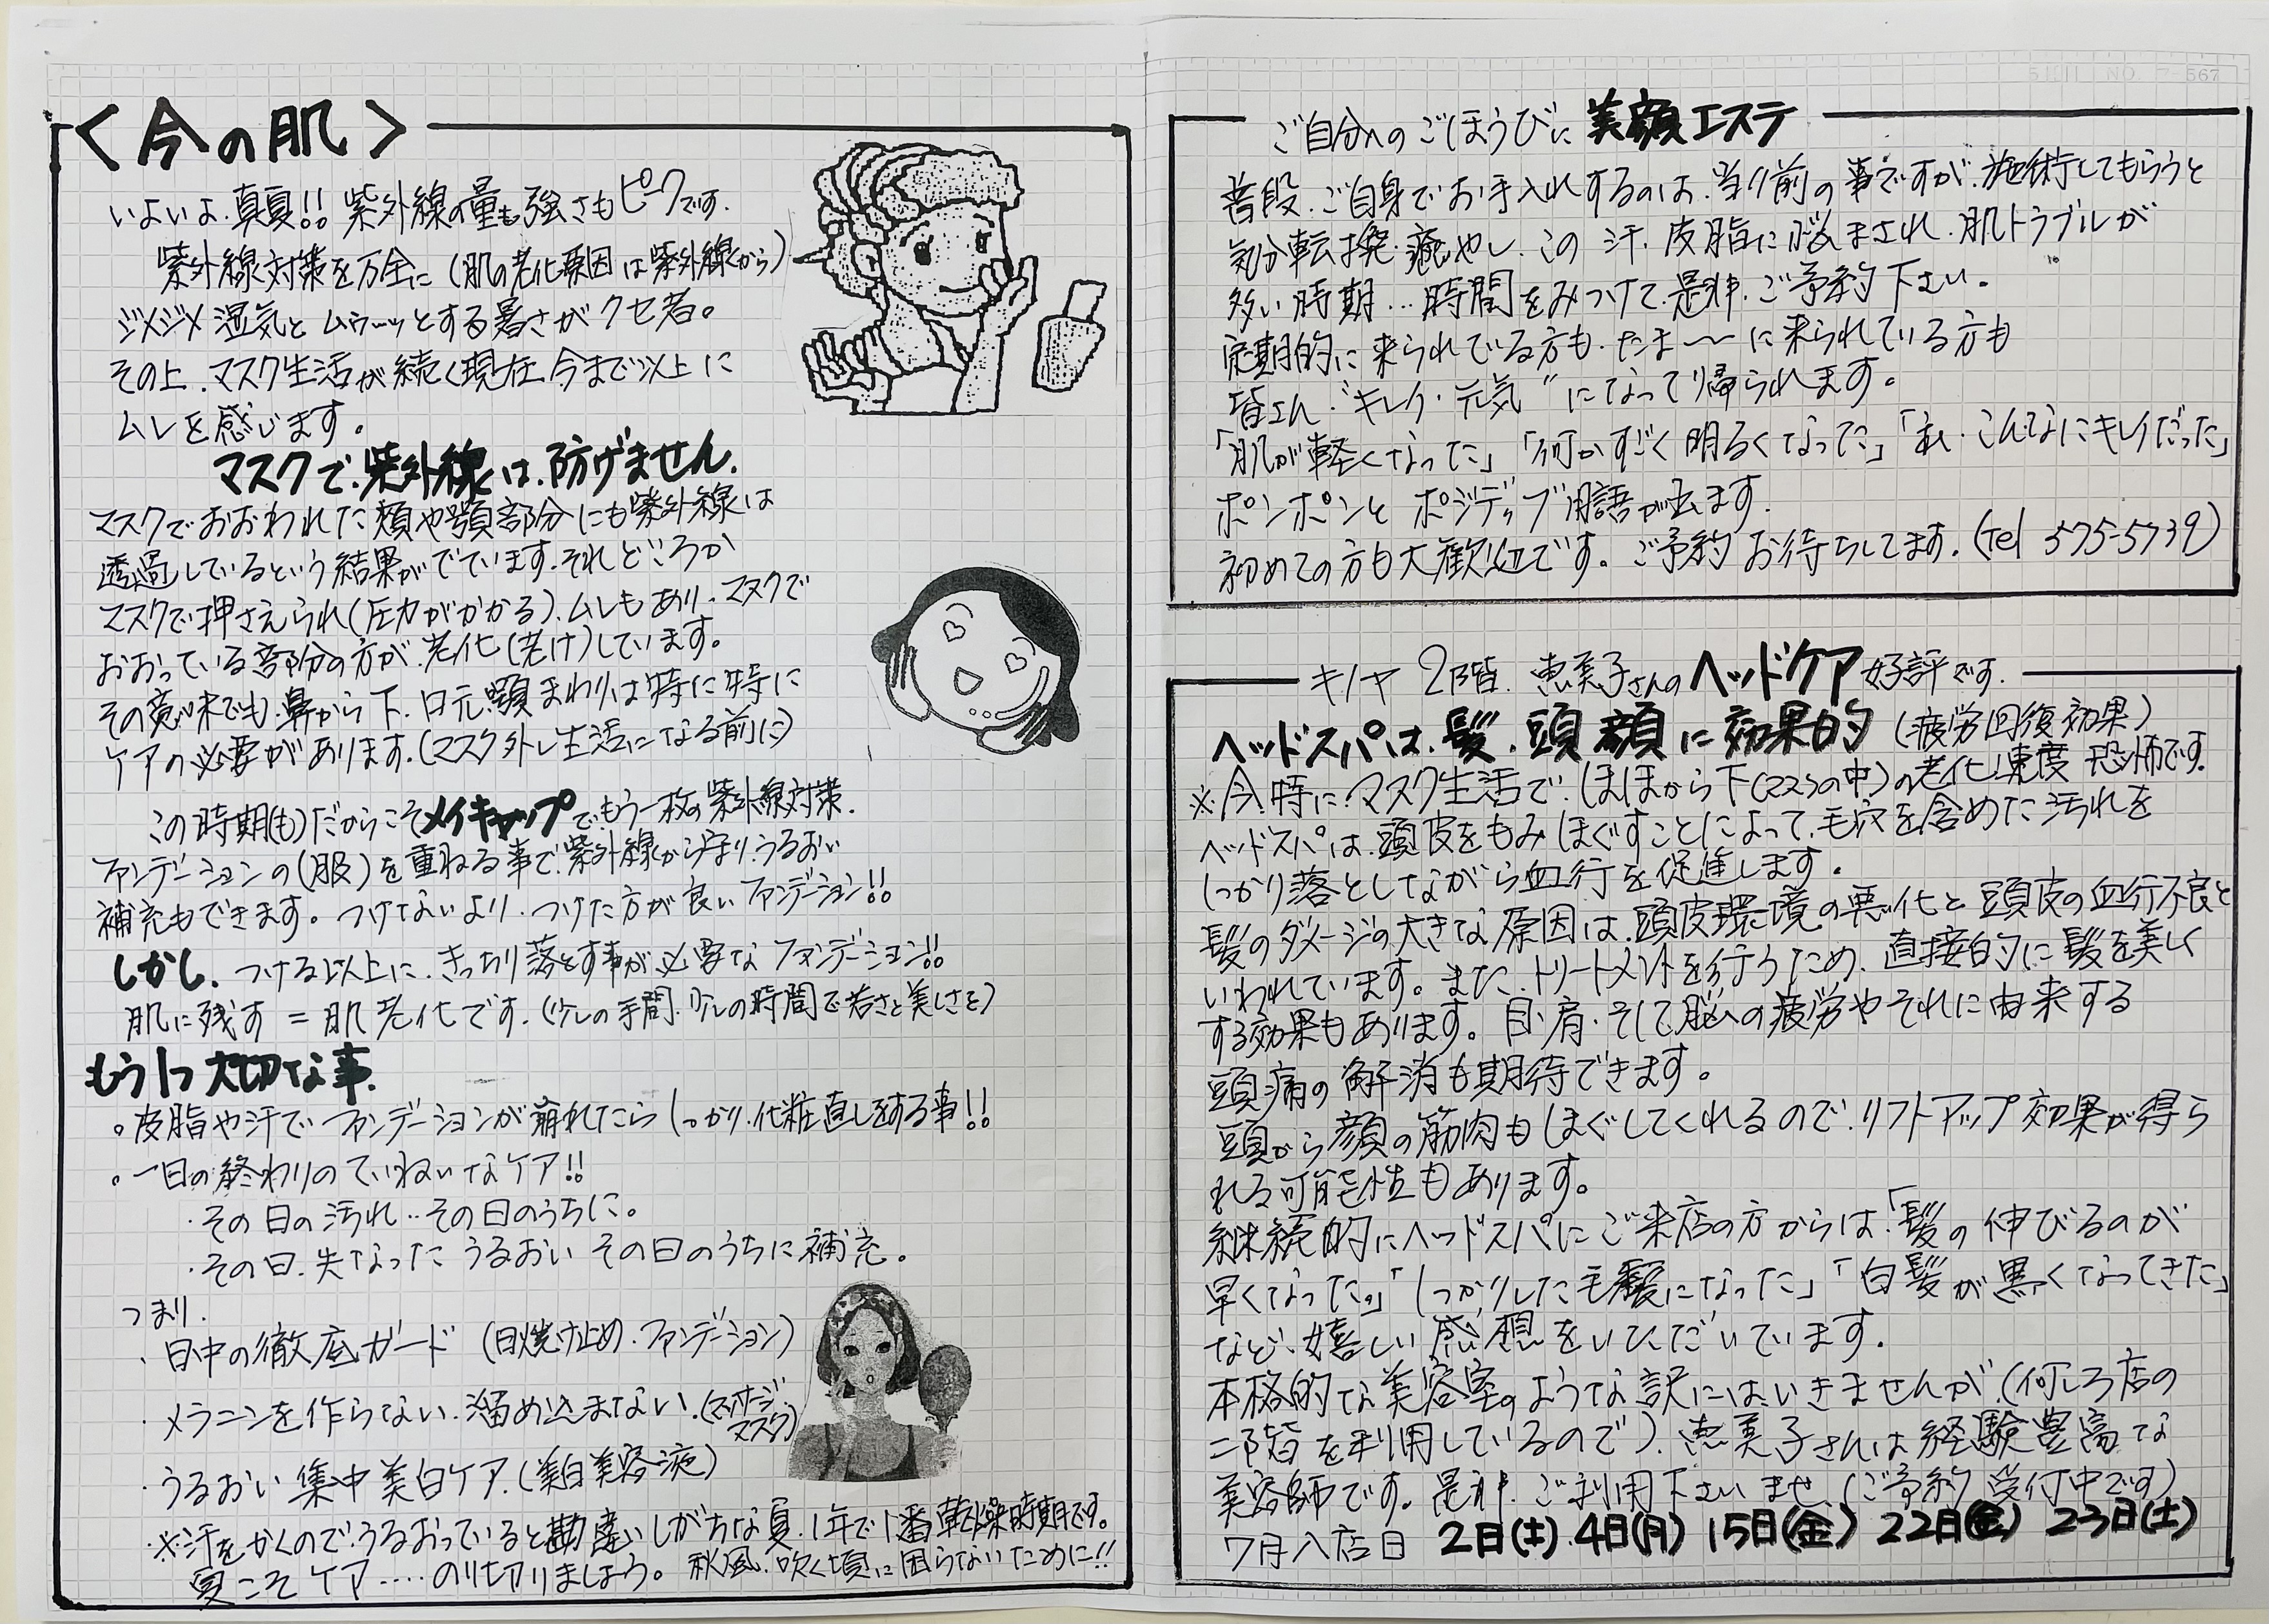 <今の肌>
いよいよ.真夏!! 紫外線の量も強さもピークです.
紫外線対策を万全に(肌の老化原因は紫外線から)
ジメジメ湿気とムゥーッとする暑さがクセ者。
その上.マスク生活が続く現在.今まで以上に
ムレを感じます。
マスクで.紫外線は.防げません.
マスクでおおわれた頬や顎部分にも紫外線は
透過しているという結果がでています.それどころか
マスクで押さえられ(圧力がかかる).ムレもあり.マスクで
おおっている部分の方が.老化(老け)しています。
その意味でも.鼻から下.口元.顎まわりは特に特に
ケアの必要があります.(マスク外し生活になる前に)
この時期(も)だからこそメイキャップでもう一枚の紫外線対策.
ファンデーションの(服)を重ねる事で.紫外線から守り.うるおい
補充もできます。つけないより.つけた方が良いファンデーション!!
しかし.つける以上に.きっちり落とす事が必要なファンデーション!!
肌に残す=肌老化です.(少しの手間.少しの時間で若さと美しさを)
もう1つ大切な事.
。皮脂や汗でファンデーションが崩れたらしっかり.化粧直しをする事!!
。一日の終わりのていねいなケア!!
・その日の汚れ‥その日のうちに。
・その日.失なったうるおいその日のうちに補充。
つまり.
・日中の徹底ガード(日焼け止め.ファンデーション)
・メラニンを作らない.溜め込まない.(マッサージ
マスク)
・うるおい集中美白ケア.(美白美容液)
・※汗をかくので.うるおっていると勘違いしがちな夏.1年で1番乾燥時期です。
夏こそケア‥‥のり切りましょう。秋風.吹く頃に困らないために!!
ご自分へのごほうびに美顔エステ
普段.ご自身でお手入れするのは.当り前の事ですが.施術してもらうと
気分転換.癒やし.この汗.皮脂に悩まされ.肌トラブルが
多い時期…時間をみつけて.是非.ご予約下さい。
定期的に来られている方も.たま〜〜に来られている方も
皆さん.“キレイ・元気”になって帰られます。
「肌が軽くなった」「何かすごく明るくなった」「私.こんなにキレイだった」
ポンポンとポジティブ用語が出ます.
初めての方も大歓迎です。ご予約お待ちしてます.(tel 575-5739)
キノヤ2階.恵美子さんのヘッドケア好評です.
ヘッドスパは.髪.頭.顔に効果的(疲労回復効果)
※今.特に.マスク生活で.(ほほから下(マスクの中)の老化速度.恐怖です.
ヘッドスパは.頭皮をもみほぐすことによって.毛穴を含めた汚れを
しっかり落としながら血行を促進します。
髪のダメージの大きな原因は.頭皮環境の悪化と頭皮の血行不良と
いわれています。また.トリートメントを行うため.直接的に髪を美しく
する効果もあります。目・肩・そして脳への疲労やそれに由来する
頭痛の解消も期待できます。
頭から顔の筋肉もほぐしてくれるので.リフトアップ効果が得ら
れる可能性もあります。
継続的にヘッドスパにご来店の方からは「髪の伸びるのが
早くなった。」「しっかりした毛髪になった」「白髪が黒くなってきた」
など.嬉しい感想をいただいています.
本格的な美容室のような訳にはいきませんが.(何しろ店の
二階を利用しているので).恵美子さんは経験豊富な
美容師です。是非.ご利用下さいませ.(ご予約受付中です)
7月入店日 2日(土).4日(月) 15日(金) 22日(金) 23日(土)